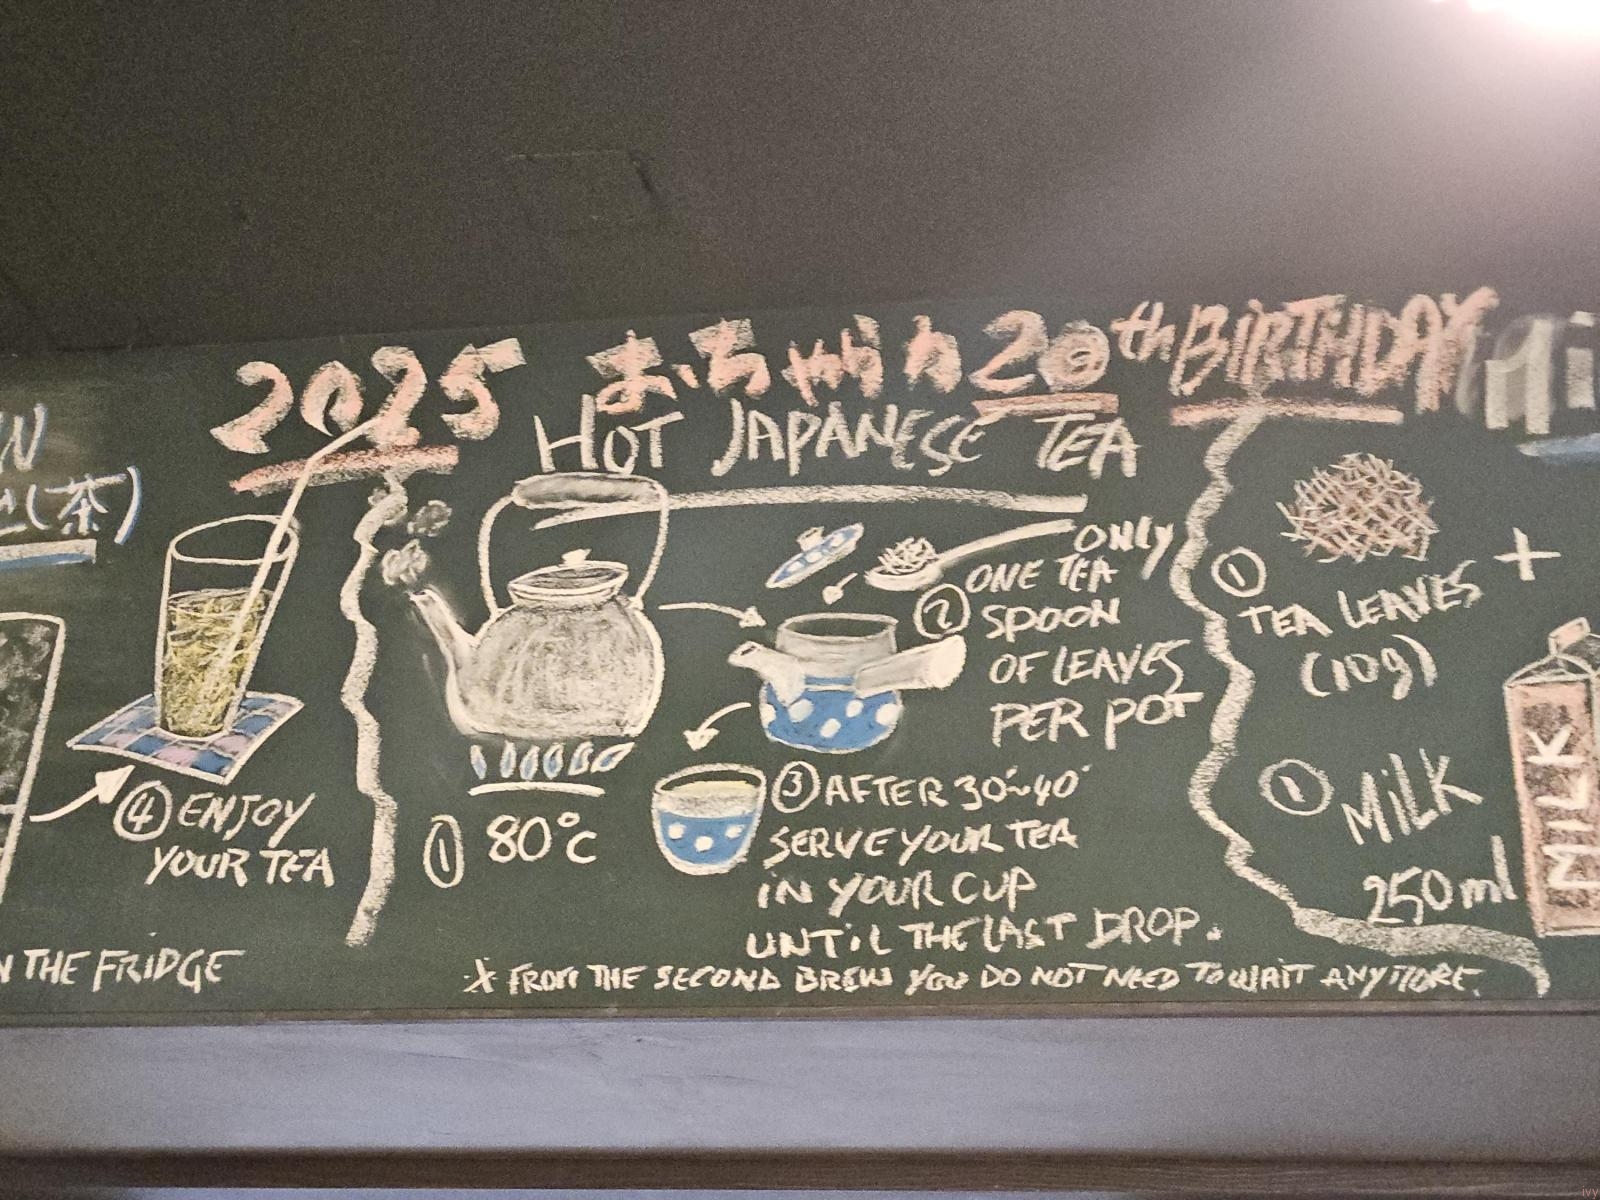 2025 おちゃらか 20th BIRTHDAY
(茶)
④ ENJOY
YOUR TEA
THE FRIDGE
HOT JAPANESE TEA
① 80°C
② ONLY
ONE TEA
SPOON
OF LEAVES
PER POT
③ AFTER 30"~40"
SERVE YOUR TEA
IN YOUR CUP
UNTIL THE LAST DROP.
* FROM THE SECOND BREW YOU DO NOT NEED TO WAIT ANYMORE.
① TEA LEAVES
(10g)
+
① MILK
250ml
MILK
ivy